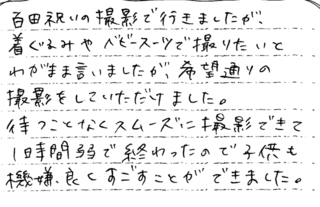 百日祝いの撮影で行きましたが、
着ぐるみやベビースーツで撮りたいと
わがまま言いましたが、希望通りの
撮影をしていただけました。
待つことなくスムーズに撮影できて
1時間弱で終わったので子供も
機嫌良くすごすことができました。